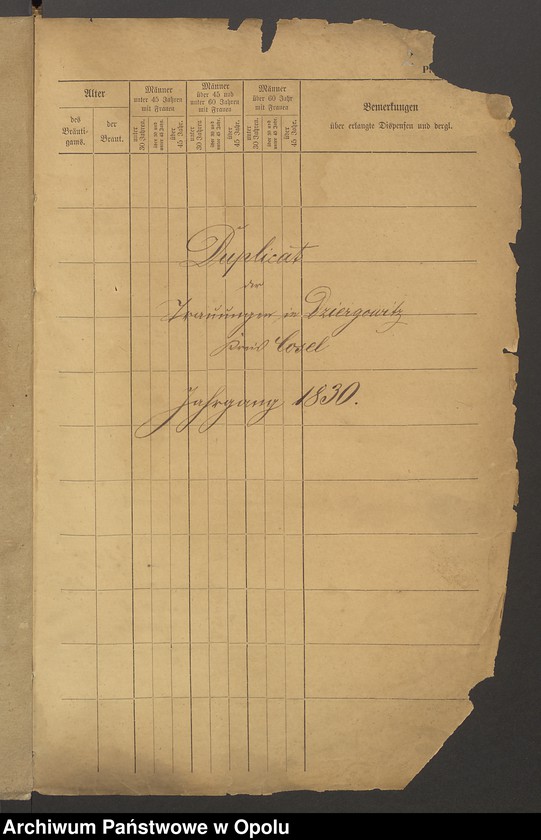 P.
Alter
des
Bräuti-
gams.
der
Braut.
Männer
unter 45 Jahren
mit Frauen
unter
30 Jahren.
über 30 und
unter 45 Jahr.
über
45 Jahr.
Männer
über 45 und
unter 60 Jahren
mit Frauen
unter
30 Jahren.
über 30 und
unter 45 Jahr.
über
45 Jahr.
Männer
über 60 Jahr
mit Frauen
unter
30 Jahren.
über 30 und
unter 45 Jahr.
über
45 Jahr.
Bemerkungen
über erlangte Dispensen und dergl.
Duplicat
der
Trauungen in Dziergowitz
Kreis Cosel
Jahrgang 1830.
Archiwum Państwowe w Opolu